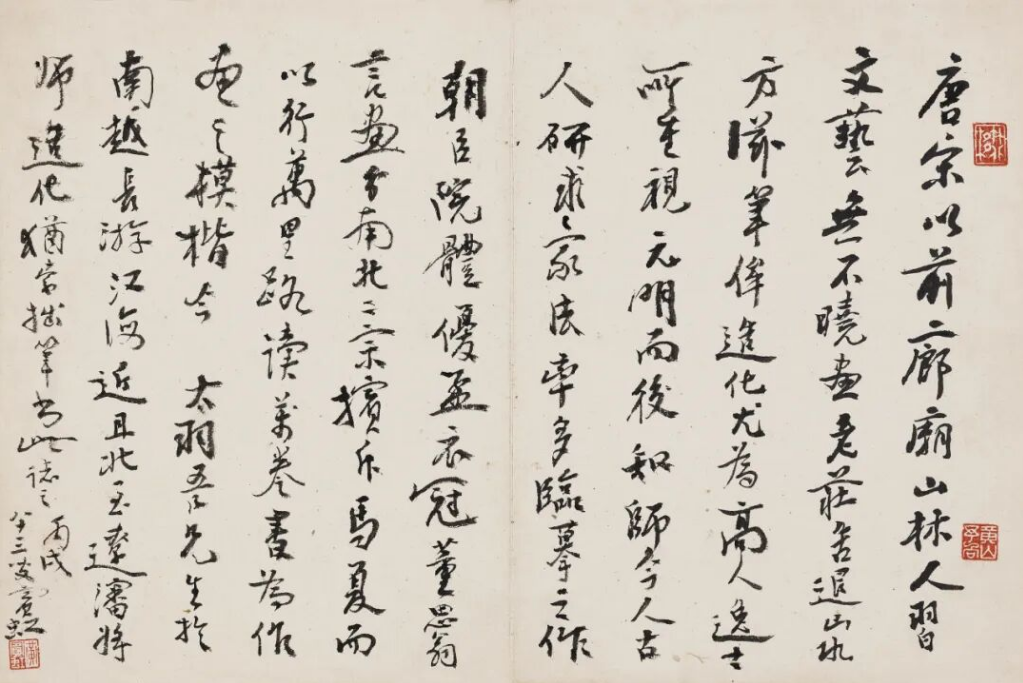 唐宋以前二廊廟山林人習
文藝無不曉畫老莊告退山水
方滋筆侔造化尤為高人逸士
所重視元明而後師今人古
人研求家法率多臨摹之作
朝臣院體優孟衣冠董思翁
言畫分南北二宗擯斥馬夏而
以行萬里路讀萬卷書為作
畫之模楷今 太羽吾兄生於
南越長游江海近且北至遼瀋將
師造化猶索拙筆書此誌之 丙戌
八十三叟賓虹
黃山予向